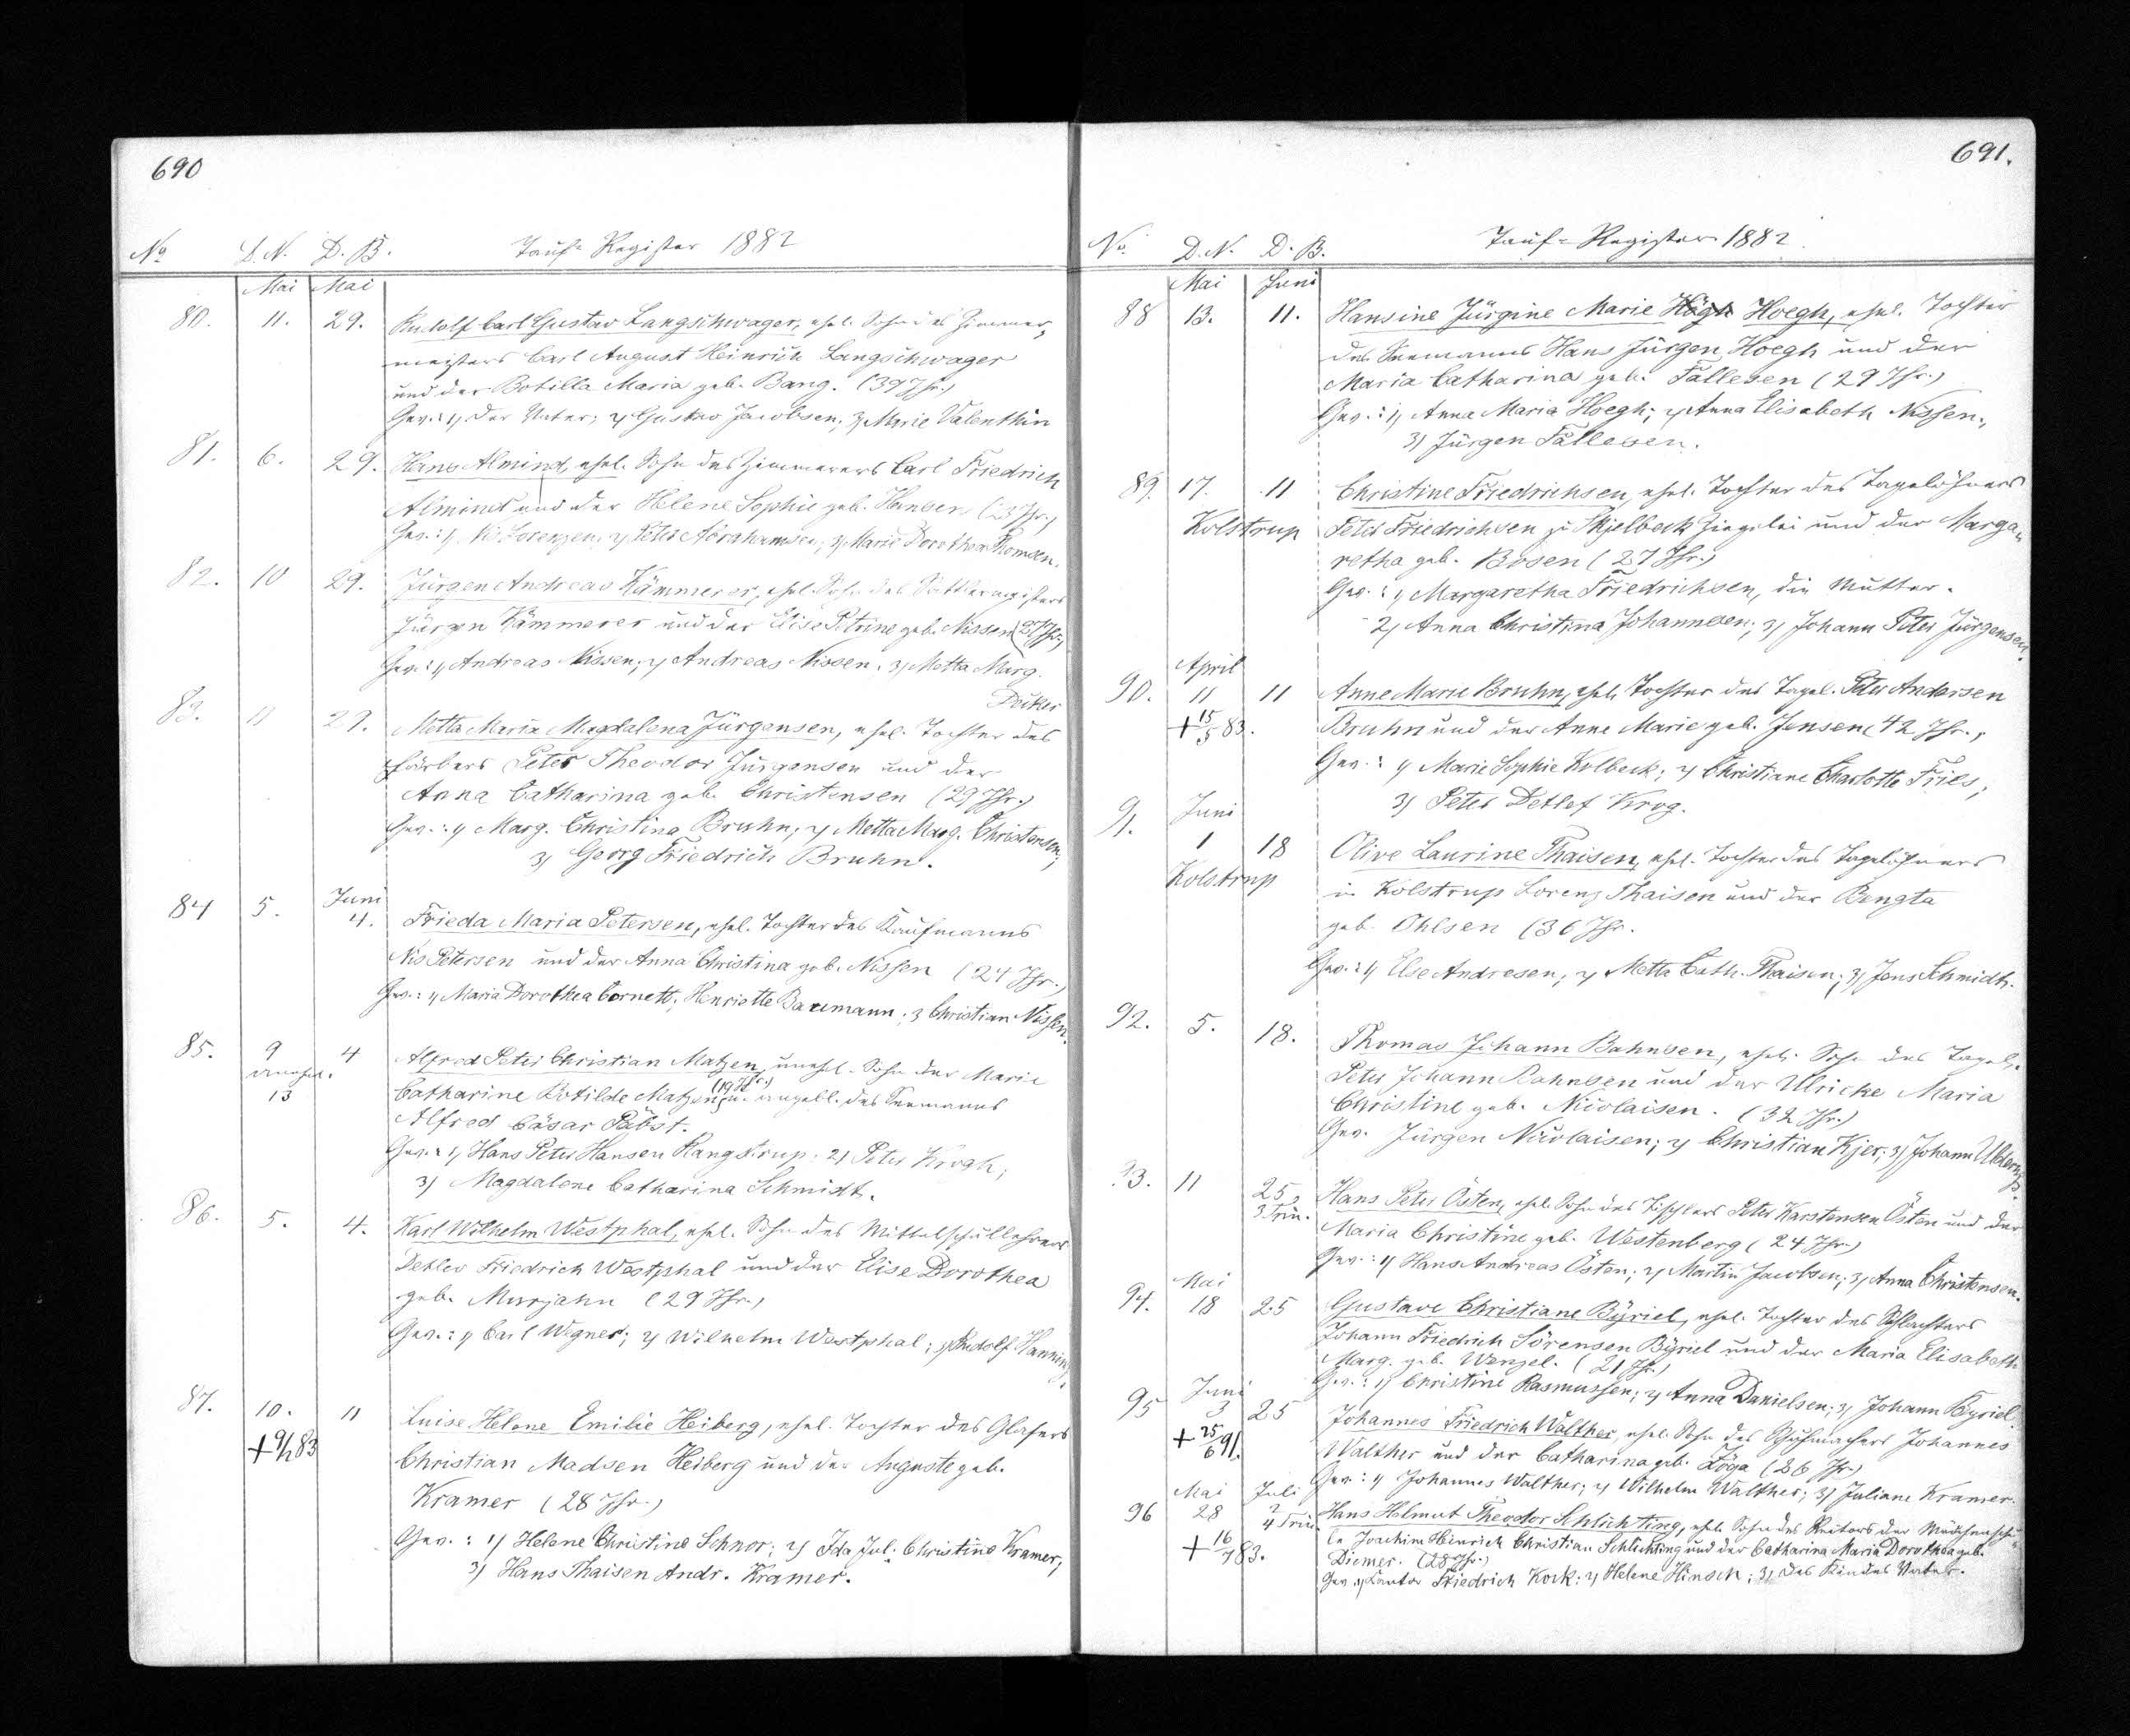 690
No D.N. D.B. Tauf-Register 1882
Mai Mai
80. 11. 29. Rudolf Carl Gustav Langschwager, ehel. Sohn des Zimmer-
meisters Carl August Heinrich Langschwager
und der Botilla Maria geb. Bang. (39 Jhr.)
Gev.: 1) Der Vater; 2) Gustav Jacobsen; 3) Marie Valenthin
81. 6. 29. Hans Almind, ehel. Sohn des Zimmerers Carl Friedrich
Almind und der Helene Sophie geb. Hansen (23 Jhr.)
Gev.: 1) Nis Lorenzen; 2) Peter Abrahamsen; 3) Marie Dorothea Thomsen.
82. 10 29. Jürgen Andreas Kämmerer, ehel. Sohn des Sattlermeisters
Jürgen Kämmerer und der Elise Petrine geb. Nissen (27 Jhr.)
Gev.: 1) Andreas Nissen; 2) Andreas Nissen. 3) Metta Marg.
83. 11 29. Metta Maria Magdalena Jürgensen, ehel. Tochter des
Färbers Peter Theodor Jürgensen und der
Anna Catharina geb. Christensen (29 Jhr.)
Gev.: 1) Marg. Christina Bruhn; 2) Metta Marg. Christensen;
3) Georg Friedrich Bruhn.
Juni
84 5. 4. Frieda Maria Petersen, ehel. Tochter des Kaufmanns
Nis Petersen und der Anna Christina geb. Nissen (24 Jhr.)
Gev.: 1) Maria Dorothea Cornett; Henriette Baumann; 3 Christian Nissen.
85. 9 4 Alfred Peter Christian Matzen, unehel. Sohn der Marie
unehel. 13 Catharine Botilde Matzen (19 Jhr.) u. angebl. des Seemanns
Alfred Cäsar Päbst.
Gev.: 1) Hans Peter Hansen Rangstrup. 2) Peter Krogh;
3) Magdalene Catharina Schmidt.
86. 5. 4. Karl Wilhelm Westphal, ehel. Sohn des Mittelschullehrers
Detlev Friedrich Westphal und der Elise Dorothea
geb. Murjahn (29 Jhr.)
Gev.: 1) Carl Wegner; 2) Wilhelm Westphal; 3) Rudolf Henning.
87. 10. 11 Luise Helene Emilie Heiberg, ehel. Tochter des Glasers
Christian Madsen Heiberg und der Auguste geb.
Kramer (28 Jhr.)
Gev.: 1) Helene Christine Schnor; 2) Ida Jul. Christine Kramer;
3) Hans Thaisen Andr. Kramer.
691.
No. D.N. D.B. Tauf-Register 1882.
Mai Juni
88 13. 11. Hansine Jürgine Marie Högh Hoegh, ehel. Tochter
des Seemanns Hans Jürgen Hoegh und der
Maria Catharina geb. Fallesen (29 Jhr.)
Gev.: 1) Anna Maria Hoegh; 2) Anna Elisabeth Nissen;
3) Jürgen Fallesen.
89. 17. 11 Christine Friedrichsen, ehel. Tochter des Tagelöhners
Kolstrup Peter Friedrichsen zu Skjelbeck Ziegelei und der Marga-
retha geb. Bosen (27 Jhr.)
Gev.: 1) Margaretha Friedrichsen, die Mutter.
2) Anna Christina Johannsen; 3) Johann Peter Jürgensen.
April
90. 11 11 Anne Marie Bruhn, ehel. Tochter des Tagel. Peter Andersen
+ 15/5 83. Bruhn und der Anne Marie geb. Jensen (42 Jhr.,
Gev.: 1) Marie Sophie Kolbeck; 2) Christiane Charlotte Fries;
3) Peter Detlef Krog.
Juni
91. 1 18 Olive Laurine Thaisen, ehel. Tochter des Tagelöhners
Kolstrup in Kolstrup Lorenz Thaisen und der Bengta
geb. Ohlsen (36 Jhr.
Gev.: 1) Else Andresen; 2) Metta Cath. Thaisen; 3) Jens Schmidt.
92. 5. 18. Thomas Johann Bahnsen, ehel. Sohn des Tagel.
Peter Johann Bahnsen und der Ulricke Maria
Christine geb. Nicolaisen. (32 Jhr.)
Gev. Jürgen Nicolaisen; 2) Christian Kjer; 3) Johann
93. 11 25 Hans Peter Osten, ehel. Sohn des Tischlers Peter Karstensen Osten und der
3. Trin. Maria Christine geb. Westenberg (24 Jhr.)
Gev.: 1) Hans Andreas Osten; 2) Martin Jacobsen; 3) Anna Christensen.
Mai
94. 18 25 Gustave Christiane Byriel, ehel. Tochter des Schlachters
Johann Friedrich Sörensen Byriel und der Maria Elisabeth
Marg. geb. Wenzel. (21 Jhr.)
Gev.: 1) Christine Rasmussen; 2) Anna Danielsen; 3) Johann Byriel.
Juni
95 3 25 Johannes Friedrich Walther, ehel. Sohn des Schuhmachers Johannes
+ 25/6 91. Walther und der Catharina geb. Zöga (26 Jhr.)
Gev.: 1) Johannes Walther; 2) Wilhelm Walther; 3) Juliane Kramer.
Mai Juli
96 28 2 Hans Helmut Theodor Schlichting, ehel. Sohn des Rektors der Mädchenschu-
4 Trin.
+ 16/7 83. le Joachim Heinrich Christian Schlichting und der Catharina Maria Dorothea geb.
Diemer. (28 Jhr.)
Gev. 1) Kantor Friedrich Kock; 2) Helene Hinsch; 3) des Kindes Vater.